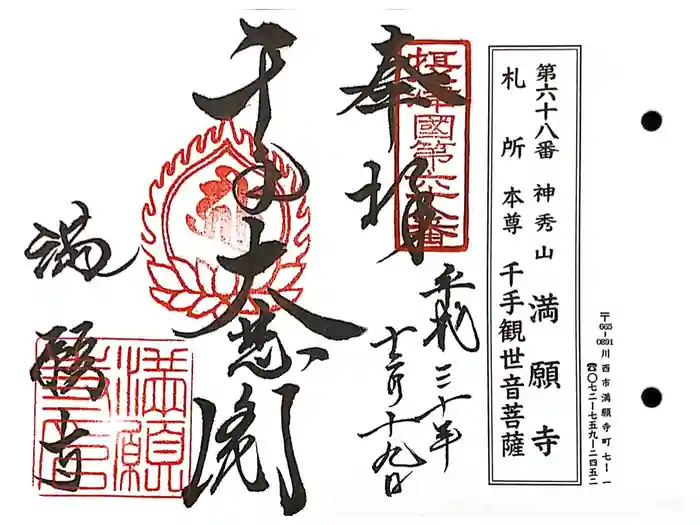 第六十八番 神秀山 満願寺
札所 本尊 千手観世音菩薩
〒665-0891 川西市満願寺町七ー一
☎〇七二ー七五九ー二四五二
奉拝
摂津國第六十八番
平成三十年
十二月十九日
千手大悲閣
満願寺
満願寺印